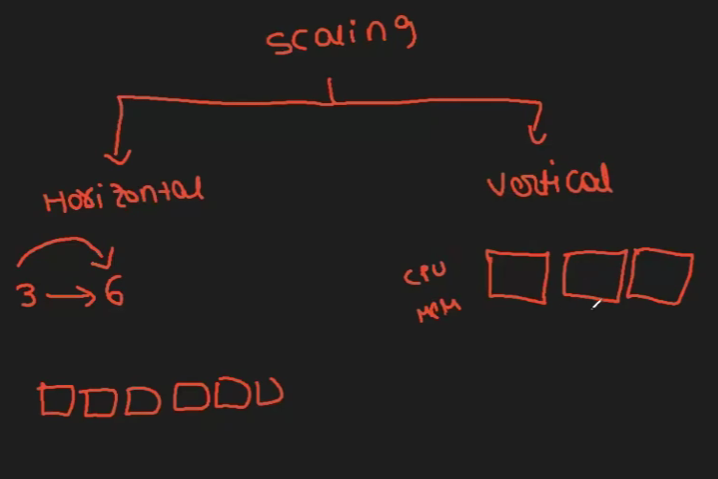 Scaling
Horizontal
Vertical
3 → 6
CPU